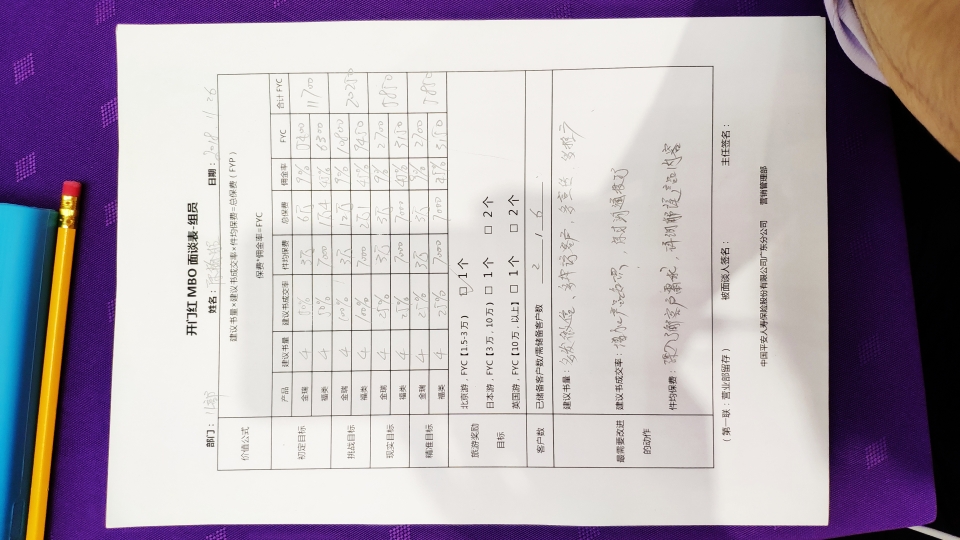 开门红 MBO 面谈表-组员
部门： 姓名： 日期：2018 11 26
价值公式 建议书量×建议书成交率×件均保费=总保费（FYP）
保费*佣金率=FYC
产品 建议书量 建议书成交率 件均保费 总保费 佣金率 FYC 合计 FYC
初定目标 金瑞 4 50% 3万 6万 9% 5400 11700
福类 4 50% 7000 1.4万 45% 6300
挑战目标 金瑞 4 100% 3万 12万 9% 10800 20250
福类 4 100% 7000 9450
现实目标 金瑞 4 25% 3万 3万 9% 2700 5850
福类 4 25% 7000 7000 45% 3150
精准目标 金瑞 4 25% 3万 3万 9% 2700 5850
福类 4 25% 7000 7000 45% 3150
旅游奖励
目标
北京游，FYC【1.5-3万】 ☑ 1个
日本游，FYC【3万，10万）□ 1个 □ 2个
英国游，FYC【10万，以上】□ 1个 □ 2个
客户数 已储备客户数/需储备客户数 2 / 6
最需要改进
的动作
建议书量：
建议书成交率：
件均保费：深入了解客户需求，
（第一联：营业部留存） 被面谈人签名： 主任签名：
中国平安人寿保险股份有限公司广东分公司 营销管理部